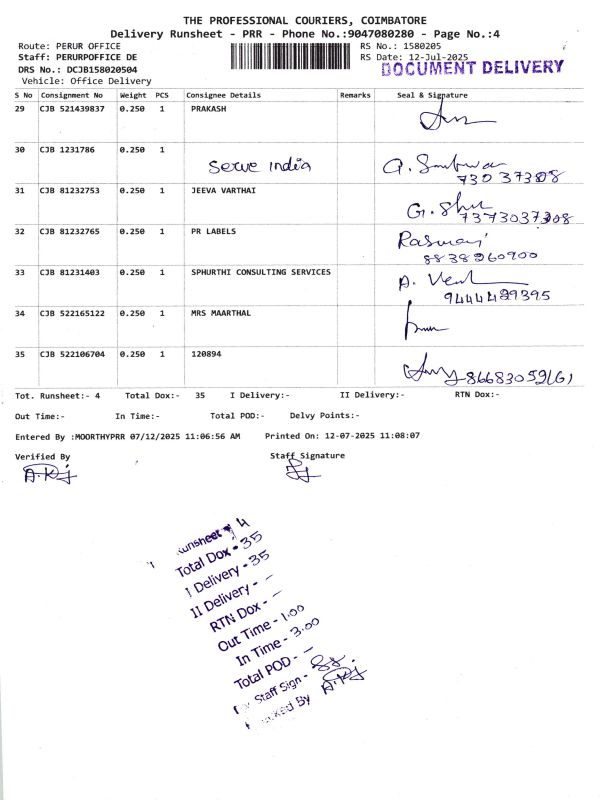 THE PROFESSIONAL COURIERS, COIMBATORE
Delivery Runsheet - PRR - Phone No.:9047080280 - Page No.:4
Route: PERUR OFFICE
RS No.: 1580205
Staff: PERURPOFFICE DE
RS Date: 12-Jul-2025
DRS No.: DCJB158020504
DOCUMENT DELIVERY
Vehicle: Office Delivery
S No Consignment No Weight PCS Consignee Details Remarks Seal & Signature
29 CJB 521439837 0.250 1 PRAKASH
30 CJB 1231786 0.250 1
Serve India
730 37308
31 CJB 81232753 0.250 1 JEEVA VARTHAI
7373037308
32 CJB 81232765 0.250 1 PR LABELS
8838260900
33 CJB 81231403 0.250 1 SPHURTHI CONSULTING SERVICES
9444489395
34 CJB 522165122 0.250 1 MRS MAARTHAL
35 CJB 522106704 0.250 1 120894
Tot. Runsheet:- 4 Total Dox:- 35 I Delivery:- II Delivery:- RTN Dox:-
Out Time:- In Time:- Total POD:- Delvy Points:-
Entered By :MOORTHYPRR 07/12/2025 11:06:56 AM Printed On: 12-07-2025 11:08:07
Verified By Staff Signature
Runsheet - 4
Total Dox - 35
I Delivery - 35
II Delivery - -
RTN Dox - -
Out Time - 1.00
In Time - 3.00
Total POD - -
Staff Sign -
By